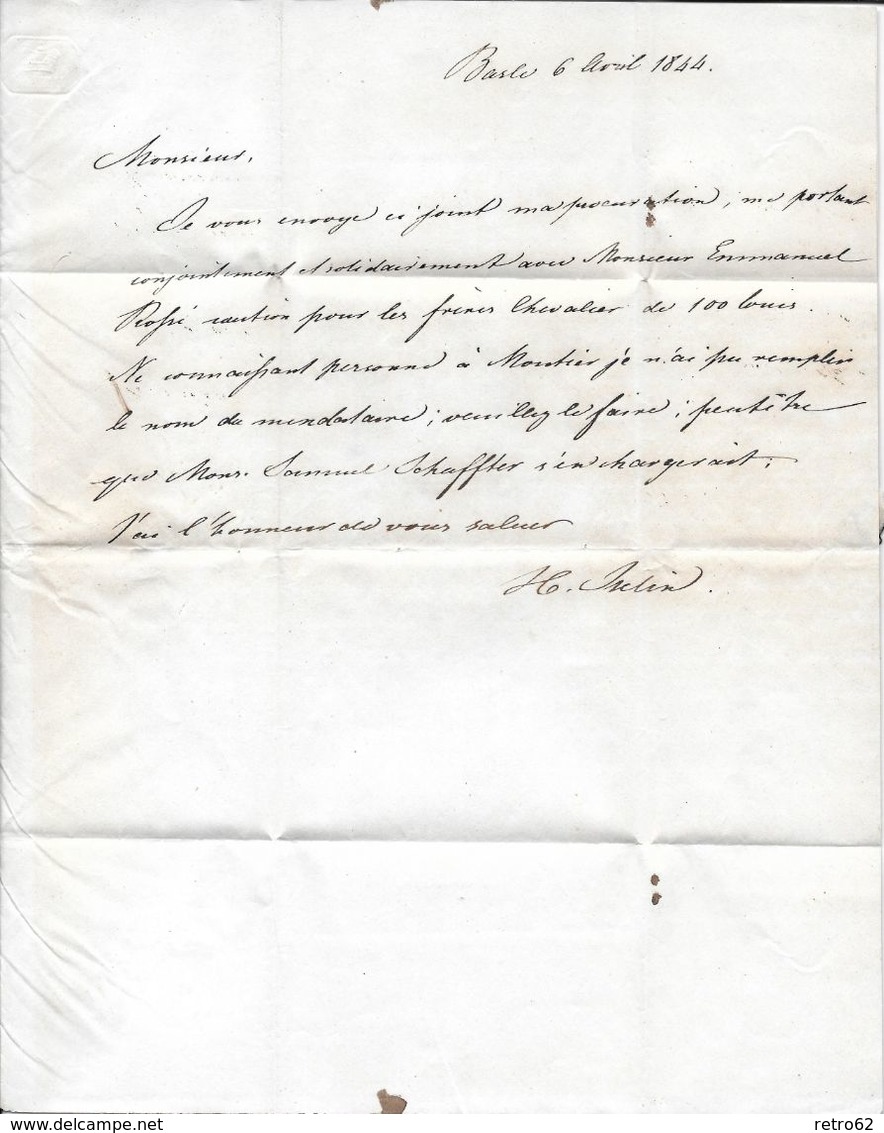 Basle 6 Avril 1844.
Monsieur,
Je vous envoye ci joint ma procuration, me portant
conjointement et solidairement avec Monsieur Emmanuel
caution pour les frères Chevalier de 100 louis.
Ne connaissant personne à Moutier je n'ai pu remplir
le nom du mendataire; veuillez le faire; peutêtre
que Mons. Samuel Schaffter s'en chargerait;
J'ai l'honneur de vous saluer
H. Iselin.
www.delcampe.net
retro62